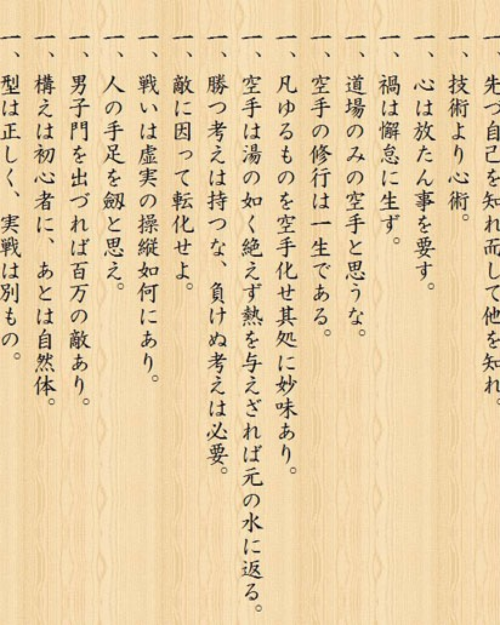 一、先づ自己を知れ而して他を知れ。
一、技術より心術。
一、心は放たん事を要す。
一、禍は懈怠に生ず。
一、道場のみの空手と思うな。
一、空手の修行は一生である。
一、凡ゆるものを空手化せ其処に妙味あり。
一、空手は湯の如く絶えず熱を与えざれば元の水に返る。
一、勝つ考えは持つな、負けぬ考えは必要。
一、敵に因って転化せよ。
一、戦いは虚実の操縦如何にあり。
一、人の手足を劔と思え。
一、男子門を出づれば百万の敵あり。
一、構えは初心者に、あとは自然体。
一、型は正しく、実戦は別もの。